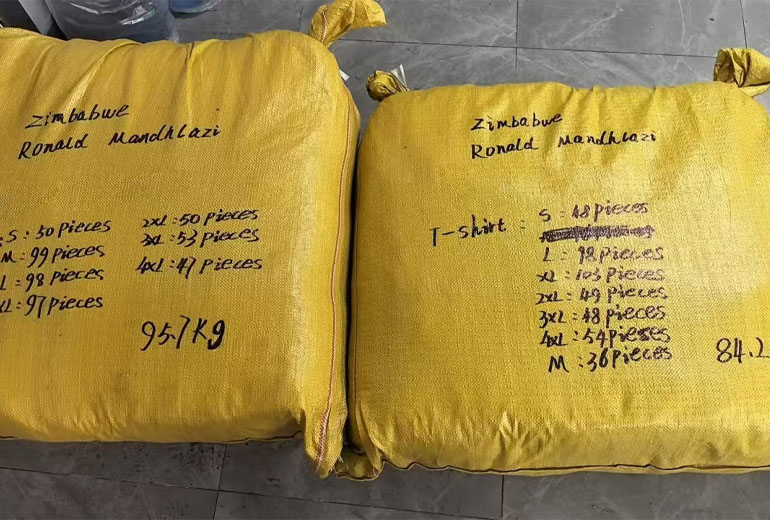 Zimbabwe
Ronald Mandhlazi
S : 50 Pieces
M : 99 Pieces
L : 98 Pieces
XL : 97 Pieces
2XL : 50 Pieces
3XL : 53 Pieces
4XL : 47 Pieces
95.7Kg
Zimbabwe
Ronald Mandhlazi
T-shirt : S : 48 Pieces
L : 98 Pieces
XL : 103 Pieces
2XL : 49 Pieces
3XL : 48 Pieces
4XL : 54 Pieses
M : 36 Pieces
84.2